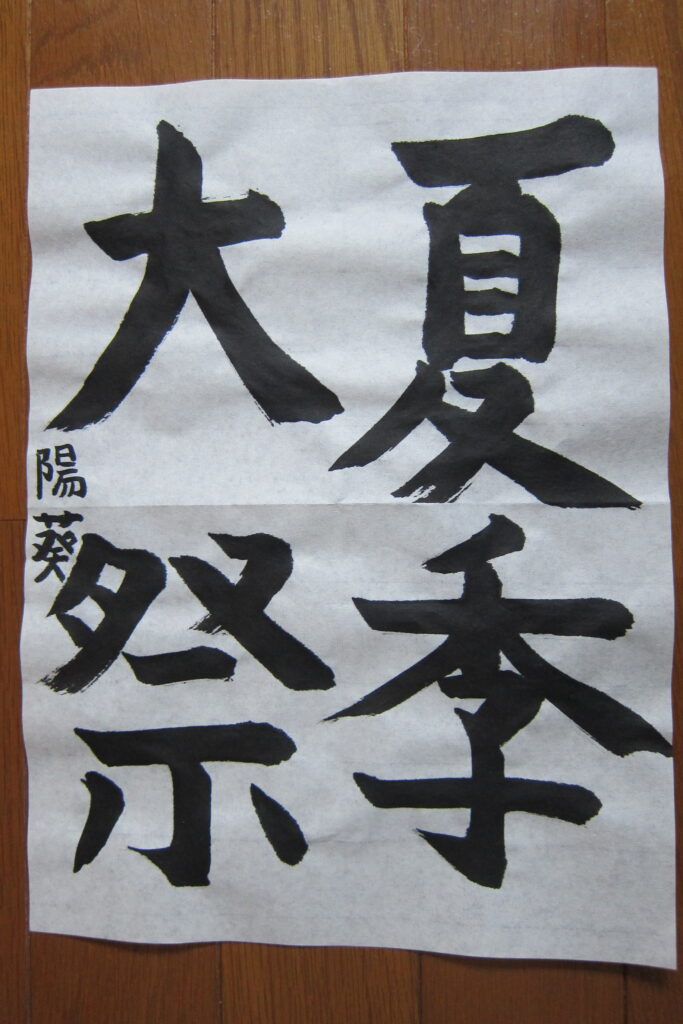 夏季
大祭
陽葵